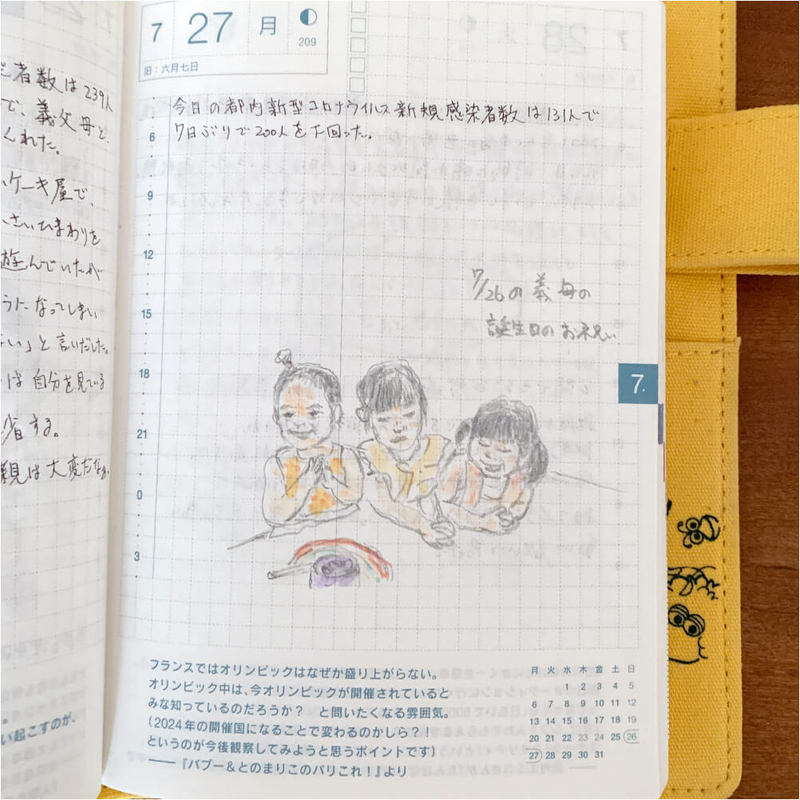 者数は239人
で、義父母と
くれた。
ケーキ屋で、
さいひまわりを
遊んでいたが
うになってしまい
い」と言いだした。
は自分を見ている
省する。
親は大変だなぁ。
い起こすのが、
7 27 月
209
旧:六月七日
今日の都内新型コロナウイルス新規感染者数は131人で
7日ぶりで200人を下回った。
6
9
12
15
18
21
0
3
7/26の義母の
誕生日のお祝い
7.
フランスではオリンピックはなぜか盛り上がらない。
オリンピック中は、今オリンピックが開催されていると
みな知っているのだろうか? と問いたくなる雰囲気。
(2024年の開催国になることで変わるのかしら?!
というのが今後観察してみようと思うポイントです)
──『バブー&とのまりこのパリこれ!』より
月 火 水 木 金 土 日
1 2 3 4 5
6 7 8 9 10 11 12
13 14 15 16 17 18 19
20 21 22 23 24 25 26
27 28 29 30 31